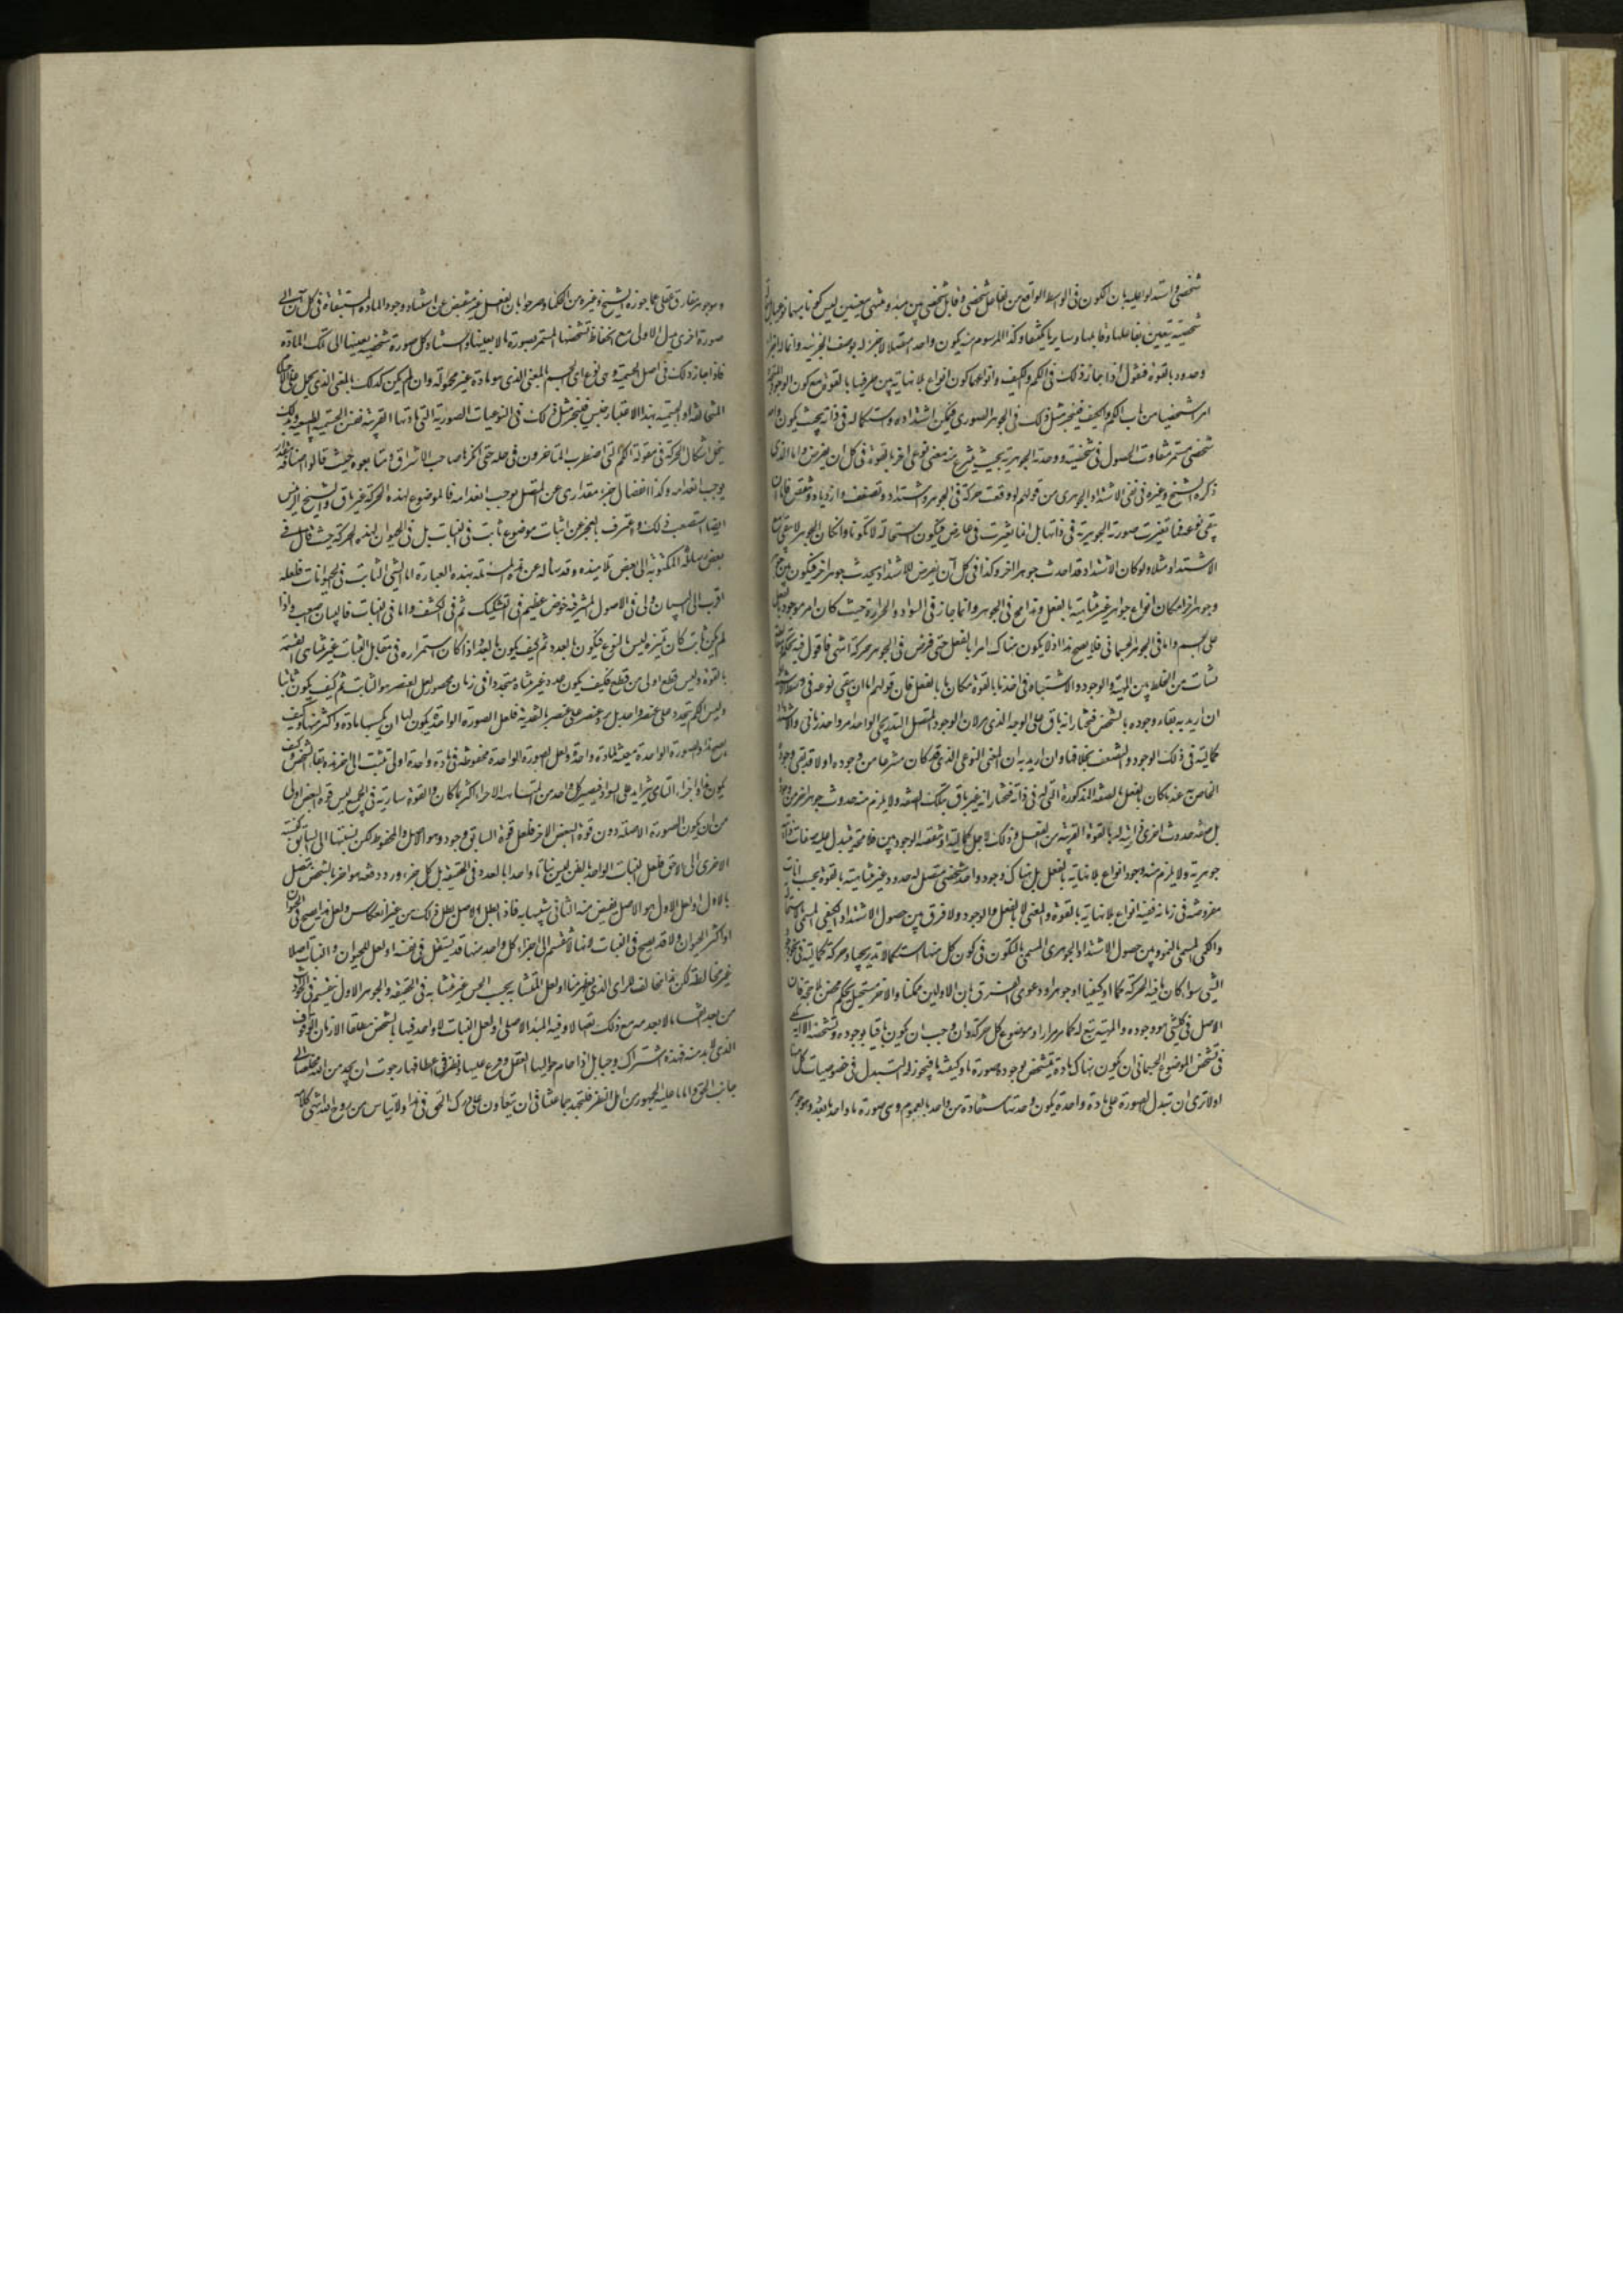 شخصی واستدلوا علیه بان الکون فی الوسط الواقع من الفاعل شخصی وقابل شخصی بین مبدء ومنتهی معینین لیس کونا مبهما نوعیا بل
شخصیته یتعین بفاعلها وقابلها وسایر ما یکتنفها وکذا المرسوم منه یکون واحدا متصلا لا جزء له بوصف الجزئیة وانما له اجزاء
وحدود بالقوة فنقول اذا جاز ذلک فی الکم والکیف وانواعها کون انواع بلا نهایة بین طرفیها بالقوة مع کون الوجود المتجدد
امرا شخصیا من باب الکم والکیف فلیجز مثل ذلک فی الجوهر الصوری فیمکن اشتداده واستکماله فی ذاته بحیث یکون واحد
شخصی مستمر متفاوت الحصول فی شخصیته ووحدته الجوهریة بحیث ینتزع منه معنی نوعی اخر بالقوة فی کل ان یفرض واما الذی
ذکره الشیخ وغیره فی نفی الاشتداد الجوهری من قولهم لو وقعت حرکة فی الجوهر واشتداد وتضعف وازدیاد وتنقص فاما ان
یبقی نوعه فما تغیرت صورته الجوهریة فی ذاتها بل انما تغیرت فی عارض فیکون استحالة لا تکونا وان کان الجوهر لا یبقی مع
الاشتداد مثلا ولو کان الاشتداد قد احدث جوهرا اخر وکذا فی کل آن یفرض للاشتداد یحدث جوهر اخر فیکون بین جوهر
وجوهر اخر امکان انواع جواهر غیر متناهیة بالفعل وهذا مح فی الجوهر وانما جاز فی السواد والحرارة حیث کان امر موجود بالفعل
علی الجسم واما فی الجوهر الجسمانی فلا یصح هذا اذ لا یکون هناک امر بالفعل حتی فرض فی الجوهر حرکة انتهی فاقول فیه تحکم
نشأت من الخلط بین المهیة والوجود والاشتباه فی اخذ ما بالقوة مکان ما بالفعل فان قولهم اما ان یبقی نوعه فی وسط الاشتداد
ان ارید به بقاء وجوده بالشخص فنختار انه باق علی الوجه الذی مر لان الوجود المتصل التدریجی الواحد امر واحد زمانی والاشتداد
کمالیة فی ذلک الوجود والتضعف بخلافها وان ارید به ان المعنی النوعی الذی قد کان منتزعا من وجوده اولا قد بقی وجوده
الخاص به عند ما کان بالفعل بالصفة المذکورة التی له فی ذاته فنختار انه غیر باق بتلک الصفة ولا یلزم منه حدوث جوهر اخر
بل صفة حدوث اخری ذاتیة له بالقوة القریبة من الفعل وذلک لاجل کمالیته او تنقصه الوجودیین فلا محالة یتبدل علیه صفات ذاتیة
جوهریة ولا یلزم منه وجود انواع بلا نهایة بالفعل بل هناک وجود واحد شخصی متصل له حدود غیر متناهیة بالقوة بحسب انات
مفروضة فی زمانه ففیه انواع بلا نهایة بالقوة والمعنی لا بالفعل والوجود ولا فرق بین حصول الاشتداد الکیفی المسمی بالاستحالة
والکمی المسمی بالنمو وبین حصول الاشتداد الجوهری المسمی بالتکون فی کون کل منها استکمالا تدریجیا وحرکة کمالیة فی نحو وجود
الشی سواء کان ما فیه الحرکة کما او کیفیا او جوهرا ودعوی الفرق بان الاولین ممکنا والاخر مستحیل تحکم محض بلا حجة فان
الاصل فی کل شی هو وجوده والمهیة تبع له کما مر مرارا وموضوع کل حرکة وان وجب ان یکون باقیا بوجوده وتشخصه الا انه یکفی
فی تشخص الموضوع الجسمانی ان یکون هناک مادة یتشخص بوجود صورة ما وکیفیة ما فیجوز له التبدل فی خصوصیات کل منها
اولا تری ان تبدل الصورة علی مادة واحدة یکون وحدتها مستفادة من واحد بالعموم وهی صورة ما واحد بالعدد وهو جوهر
وموجود مفارق عقلی مما جوزه الشیخ وغیره من الحکماء وصرحوا بان العقل غیر منقبض عن استناد وجود المادة المستبقاة فی کل آن الی
صورة اخری بدل الاولی مع انحفاظ تشخصها المستمر بصورة ما لا بعینها واستناد کل صورة شخصیة بعینها الی تلک المادة
فاذا جاز ذلک فی اصل الجسمیة وهی نوع ای الجسم بالمعنی الذی هو مادة غیر محمولة وان لم یکن کذلک بالمعنی الذی یحمل علی الاجسام
المتخالفة اذ الجسمیة بهذا الاعتبار جنس فلیجز مثل ذلک فی النوعیات الصوریة التی مادتها القریبة نفس الجسمیة الطبیعیة وبذلک
ینحل اشکال الحرکة فی مقولة الکم التی اضطرب المتأخرون فی حله حتی انکرها صاحب الاشراق ومتابعوه حیث قالوا اضافة مقدار
یوجب انعدامه وکذا انفصال جزء مقداری عن المتصل یوجب انعدامه فالموضوع لهذه الحرکة غیر باق والشیخ الرئیس
ایضا استصعب ذلک واعترف بالعجز عن اثبات موضوع ثابت فی النبات بل فی الحیوان لهذه الحرکة حیث قال فی
بعض رسائله المکتوبة الی بعض تلامیذه وقد ساله عن هذه المسئلة بهذه العبارة اما الشی الثابت فی الحیوانات فلعله
اقرب الی البیان ولی فی الاصول المشرقیة خوض عظیم فی التشکیک ثم فی الکشف واما فی النبات فالبیان صعب واذا
لم یکن ثابت کان تمیزه لیس بالنوع فیکون بالعدد ثم کیف یکون بالعدد اذا کان استمراره فی مقابل الثبات غیر متناهی القسمة
بالقوة ولیس قطع اولی من قطع فکیف یکون عدد غیر متناه متجددا فی زمان محصور لعل العنصر هو الثابت ثم کیف یکون ثابتا
ولیس الکم یتجدد علی عنصر واحد بل یرد عنصر علی عنصر بالتغذیة فلعل الصورة الواحدة یکون لها ان یکسبها مادة واکثر منها وکیف
یصح هذا والصورة الواحدة معینة لمادة واحدة ولعل الصورة الواحدة محفوظة فی مادة واحدة اولی تثبت الی اخر مدة بقاء الشخص وکیف
یکون هذا واجزاء النامی یتزاید علی السواد فیصیر کل واحد من المتشابهة الاجزاء اکثر مما کان والقوة ساریة فی الجمیع لیس قوة البعض اولی
من ان یکون الصورة الاصلیة دون قوة البعض الاخر فلعل قوة السابق وجودا هو الاصل والمحفوظ لکن نسبتها الی السابق کنسبة
الاخری الی اللاحق فلعل النبات الواحد بالظن لیس نباتا واحدا بالعدد فی الحقیقة بل کل جزء ورد دفعة هو اخر بالشخص متصل
بالاول او لعل الاول هو الاصل یفیض منه الثانی شبیها به فاذا بطل الاصل بطل ذلک من غیر انعکاس ولعل هذا یصح فی الحیوان
او اکثر الحیوان ولا قد یصح فی النبات لانها لا تنقسم الی اجزاء کل واحد منها قد یستقل فی نفسه او لعل للحیوان والنبات اصلا
غیر مخالطة لکن هذا مخالف للرای الذی یظهر منا او لعل المتشابه بحسب الحس غیر متشابه فی الحقیقة والجوهر الاول ینقسم فی الحوادث
من بعد انقساما لا یعدمه مع ذلک اتصالا وفیه المبدأ الاصلی او لعل النبات لا واحد فیها بالشخص مطلقا الا زمان الوقوف
الذی لا بد منه فهذه اشراک وحبایل اذا حام حوالیها العقل وفرع علیها ونظر فی اعطافها رجوت ان یجد من الله مخلصا الی
جانب الحق واما ما علیه الجمهور من اهل النظر فلیجتهد جماعتنا فی ان یتعاون علی درک الحق فی هذا ولا ییاس من روح الله انتهی کلامه